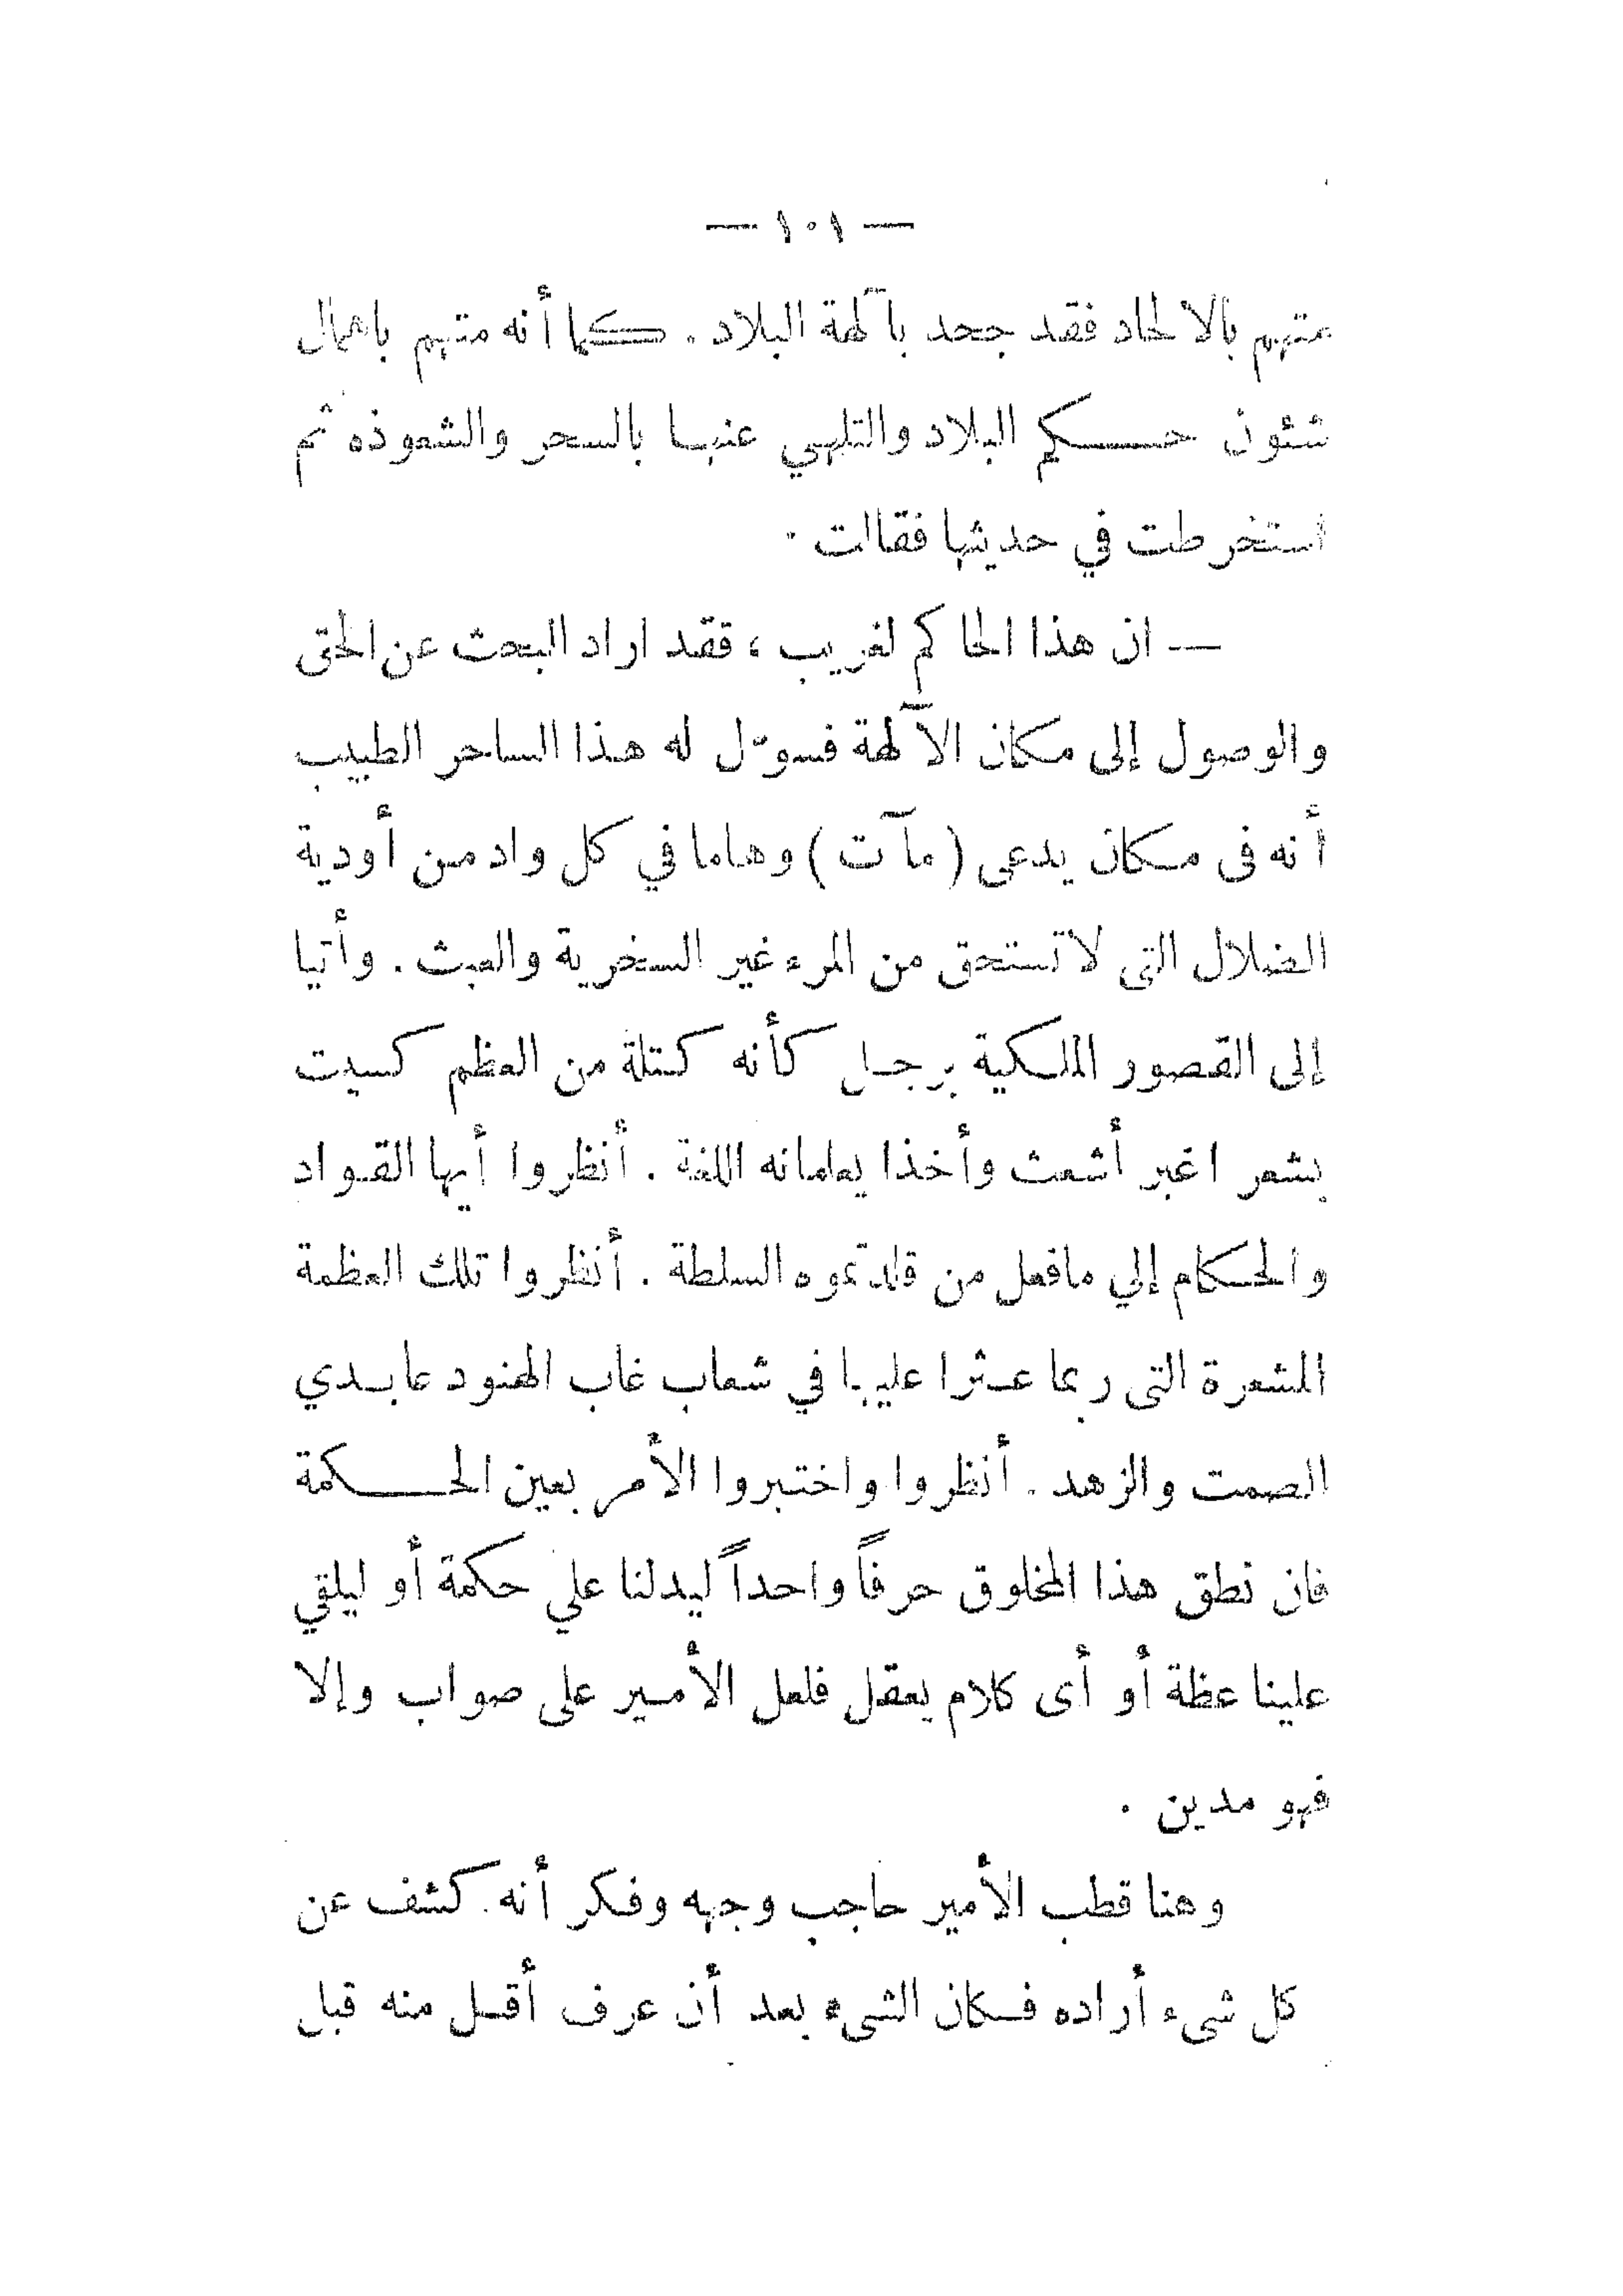 — ١٠١ —
متهم بالالحاد فقد جحد بآلهة البلاد . كما أنه متهم باهمال
شئون حكم البلاد والتلهي عنها بالسحر والشعوذه ثم
استخرطت في حديثها فقالت .
— ان هذا الحاكم لغريب ، فقد اراد البحث عن الحق
والوصول إلى مكان الآلهة فسوّل له هذا الساحر الطبيب
أنه فى مكان يدعى ( مآت ) وهاما في كل واد من أودية
الضلال التى لا تستحق من المرء غير السخرية والعبث . وأتيا
إلى القصور الملكية برجل كأنه كتلة من العظم كسيت
بشعر اغبر أشعث وأخذا يعلمانه اللغة . أنظروا أيها القواد
والحكام إلي مافعل من قلدتموه السلطة . أنظروا تلك العظمة
المشعرة التى ربما عثرا عليها في شعاب غاب الهنود عابدي
الصمت والزهد . أنظروا واختبروا الأمر بعين الحكمة
فان نطق هذا المخلوق حرفاً واحداً ليدلنا علي حكمة أو ليلقي
علينا عظة أو أى كلام يعقل فلعل الأمير على صواب وإلا
فهو مدين .
وهنا قطب الأمير حاجب وجهه وفكر أنه كشف عن
كل شىء أراده فكان الشىء بعد أن عرف أقل منه قبل